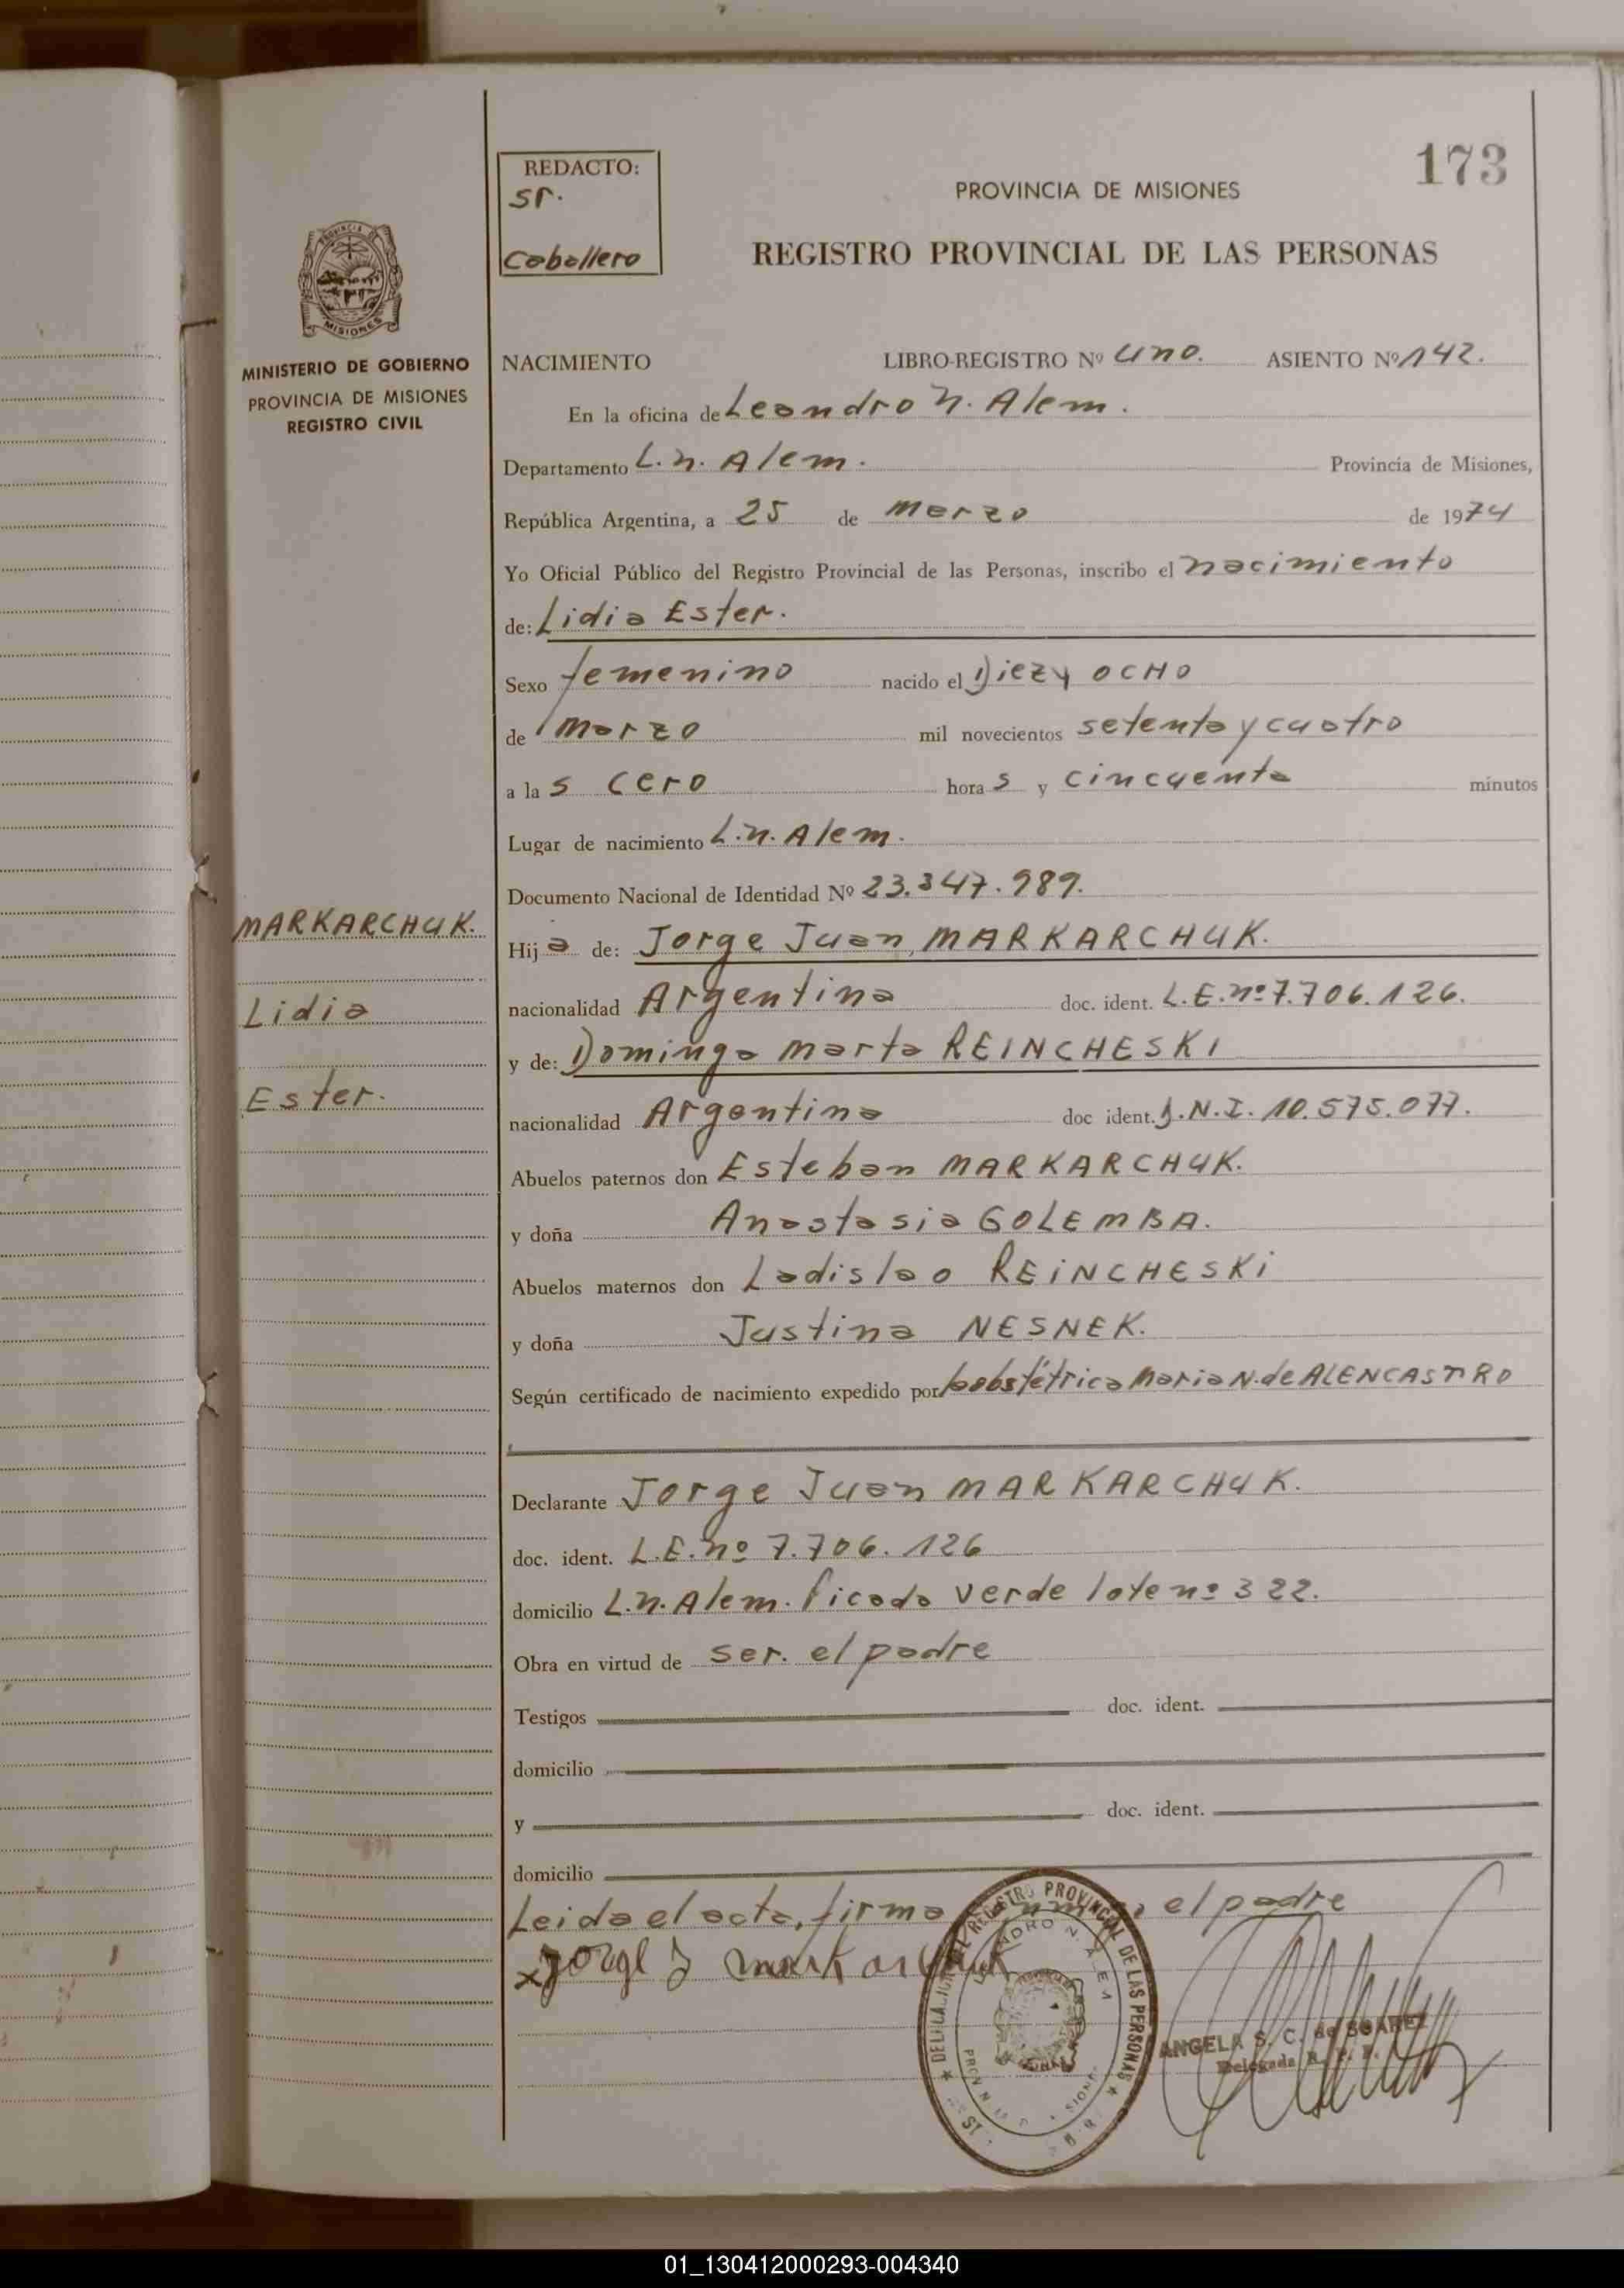 173
REDACTO:
sr.
Caballero
PROVINCIA DE MISIONES
REGISTRO PROVINCIAL DE LAS PERSONAS
PROVINCIA DE
MISIONES
MINISTERIO DE GOBIERNO
PROVINCIA DE MISIONES
REGISTRO CIVIL
NACIMIENTO LIBRO-REGISTRO Nº uno. ASIENTO Nº 142.
En la oficina de Leandro N. Alem.
Departamento L.N. Alem. Provincia de Misiones,
República Argentina, a 25 de marzo de 1974
Yo Oficial Público del Registro Provincial de las Personas, inscribo el nacimiento
de: Lidia Ester.
Sexo femenino nacido el Diez y OCHO
de marzo mil novecientos setenta y cuatro
a las cero horas y cincuenta minutos
Lugar de nacimiento L.N. Alem.
Documento Nacional de Identidad Nº 23.347.989.
MARKARCHUK.
Lidia
Ester.
Hija de: Jorge Juan MARKARCHUK.
nacionalidad Argentina doc. ident. L.E.nº 7.706.126.
y de: Dominga marta REINCHESKI
nacionalidad Argentina doc ident. D.N.I. 10.575.077.
Abuelos paternos don Esteban MARKARCHUK.
y doña Anastasia GOLEMBA.
Abuelos maternos don Ladislao REINCHESKI
y doña Justina NESNEK.
Según certificado de nacimiento expedido por obstétrica Maria N. de ALENCASTRO
Declarante Jorge Juan MARKARCHUK.
doc. ident. L.E.nº 7.706.126
domicilio L.N. Alem. Picada verde lote nº 322.
Obra en virtud de ser. el padre
Testigos doc. ident.
domicilio
y doc. ident.
domicilio
Leida el acta, firma el padre
x Jorge J markarchuk
REGISTRO PROVINCIAL DE LAS PERSONAS
LEANDRO N. ALEM
ANGELA S. C. de SOAREZ
Delegada R. P. P.
01_130412000293-004340